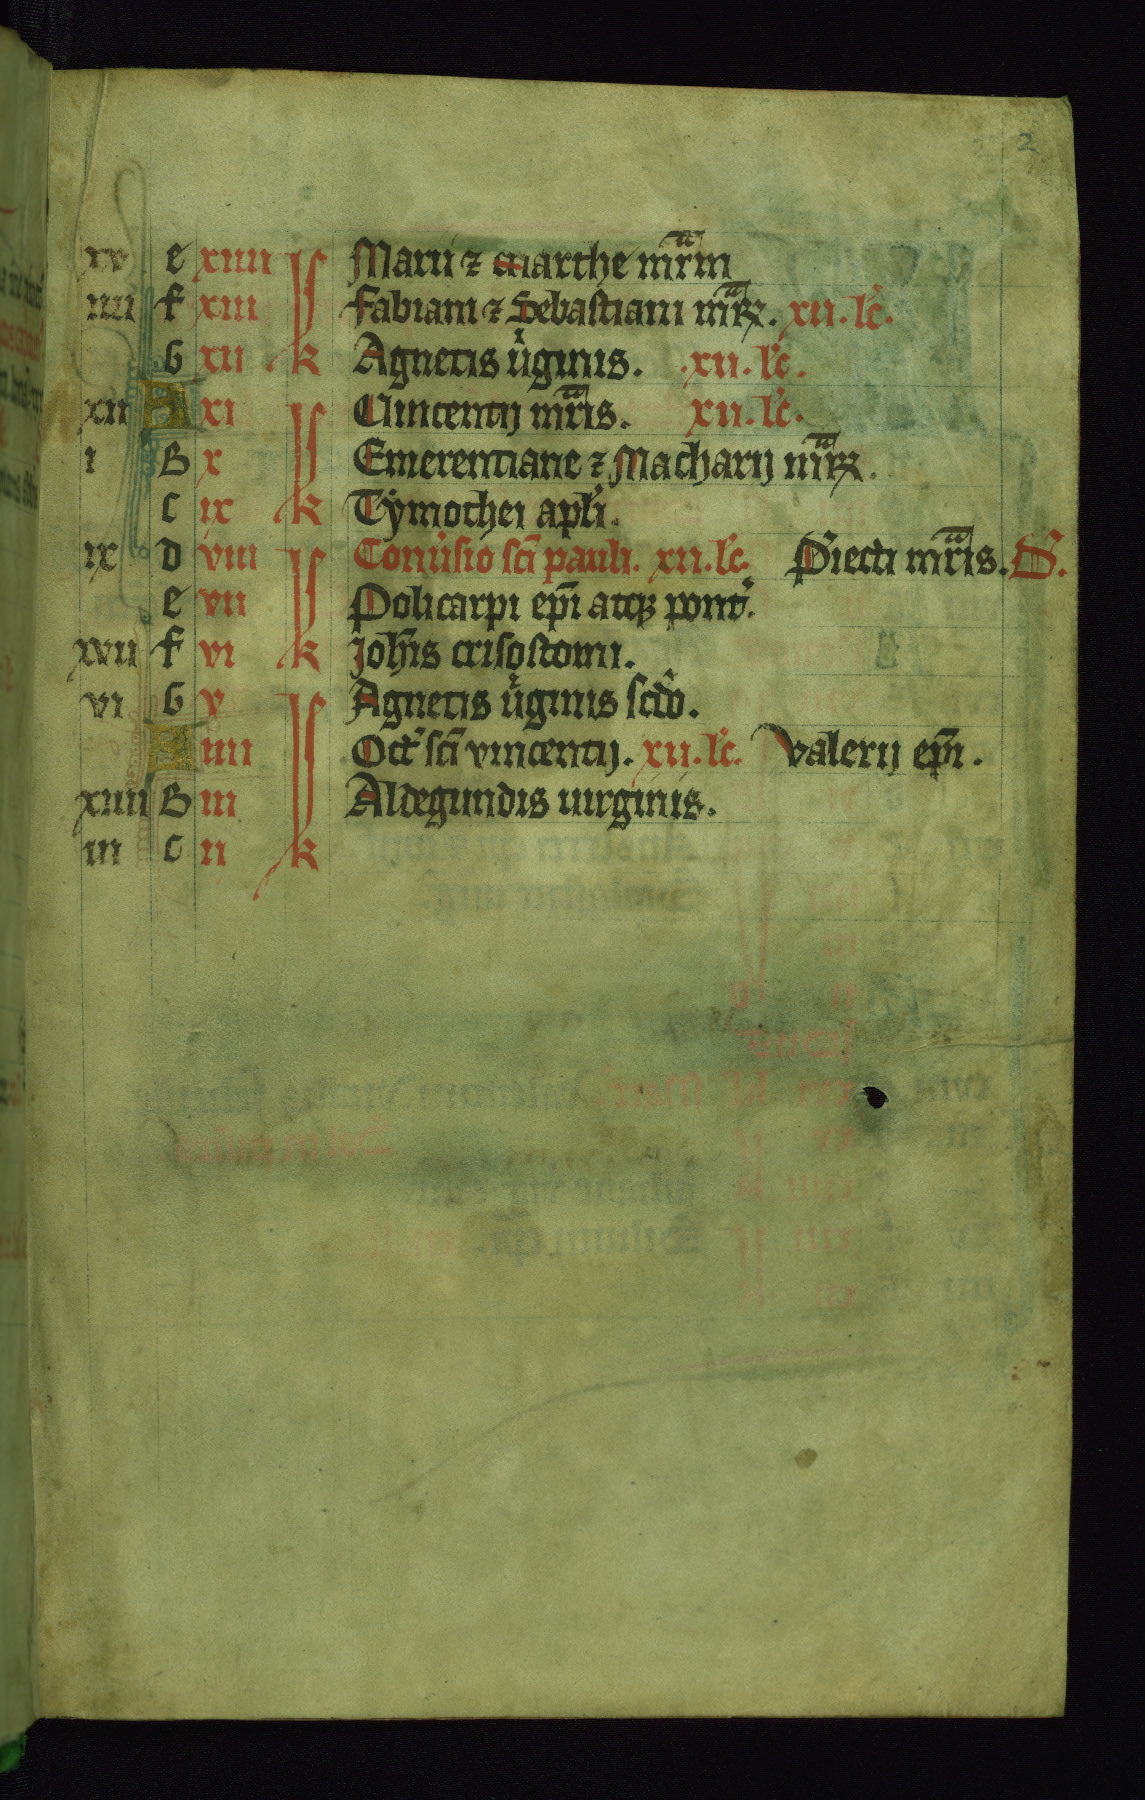 2
xv e xiiii Marii ⁊ marthe mr̄m
iiii f xiii Fabiani ⁊ Sebastiani mr̄ꝝ. xii. lc̄.
G xii k Agnetis ũginis. .xii. lc̄.
xii A xi Vincentij mr̄is. xii. lc̄.
i B x Emerentiane ⁊ Macharij mr̄ꝝ.
c ix k Tẏmothei apl̄i.
ix d viii Conu̓sio sc̄i pauli. xii. lc̄. P̄iecti mr̄is. D.
e vii Policarpi ep̄i atqꝫ pont̓.
xvii f vi k Joh̄is crisostomi.
vi G v Agnetis ũginis sc̄do.
A iiii Oct̓ sc̄i vincentij. xii. lc̄. Valerij ep̄i.
xiiii B iii Aldegundis uirginis.
iii c ii k